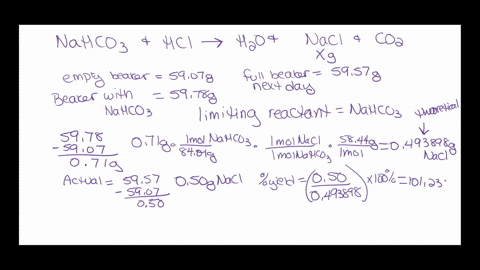 NaHCO3 + HCl → H2O + NaCl + CO2
Xg
empty beaker = 59.07g
full beaker = 59.57g
next day
Beaker with = 59.78g
NaHCO3
limiting reactant = NaHCO3
theoretical
59.78
-59.07
0.71g
0.71g · 1mol NaHCO3 / 84.01g · 1mol NaCl / 1mol NaHCO3 · 58.44g / 1mol = 0.493898g
NaCl
Actual = 59.57
-59.07
0.50
0.50g NaCl
% yield = (0.50 / 0.493898) × 100% = 101.23